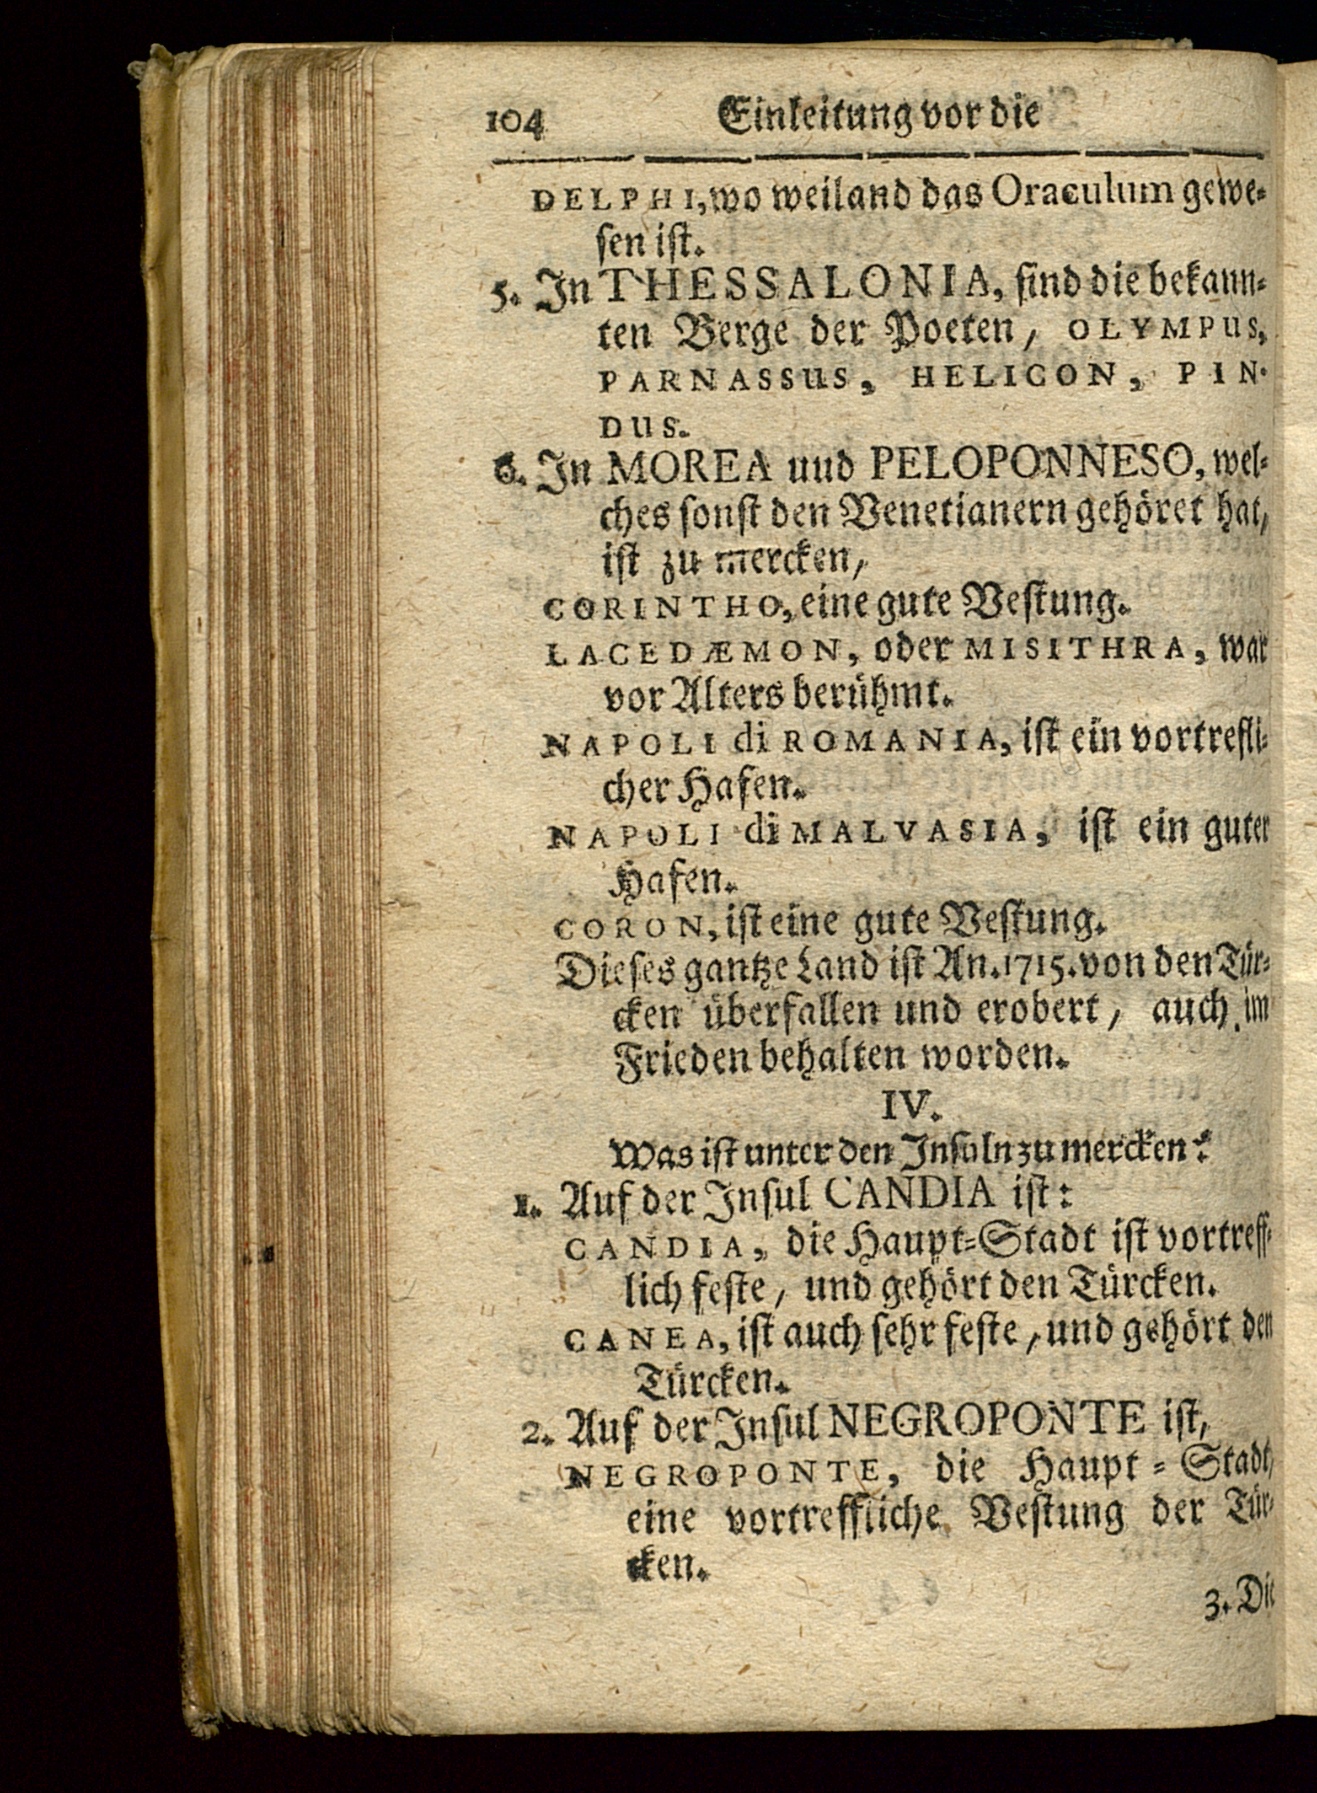 104 Einleitung vor die
DELPHI, wo weiland das Oraculum gewe-
sen ist.
5. In THESSALONIA, sind die bekann-
ten Berge der Poeten, OLYMPUS,
PARNASSUS, HELICON, PIN-
DUS.
6. In MOREA uud PELOPONNESO, wel-
ches sonst den Venetianern gehöret hat,
ist zu mercken,
CORINTHO, eine gute Vestung.
LACEDÆMON, oder MISITHRA, war
vor Alters berühmt.
NAPOLI di ROMANIA, ist ein vortrefli-
cher Hafen.
NAPOLI di MALVASIA, ist ein guter
Hafen.
CORON, ist eine gute Vestung.
Dieses gantze Land ist An. 1715. von den Tür-
cken überfallen und erobert, auch im
Frieden behalten worden.
IV.
Was ist unter den Insuln zu mercken?
1. Auf der Insul CANDIA ist:
CANDIA, die Haupt-Stadt ist vortreff-
lich feste, und gehört den Türcken.
CANEA, ist auch sehr feste, und gehört den
Türcken.
2. Auf der Insul NEGROPONTE ist,
NEGROPONTE, die Haupt-Stadt,
eine vortreffliche Vestung der Tür-
cken.
3. Die